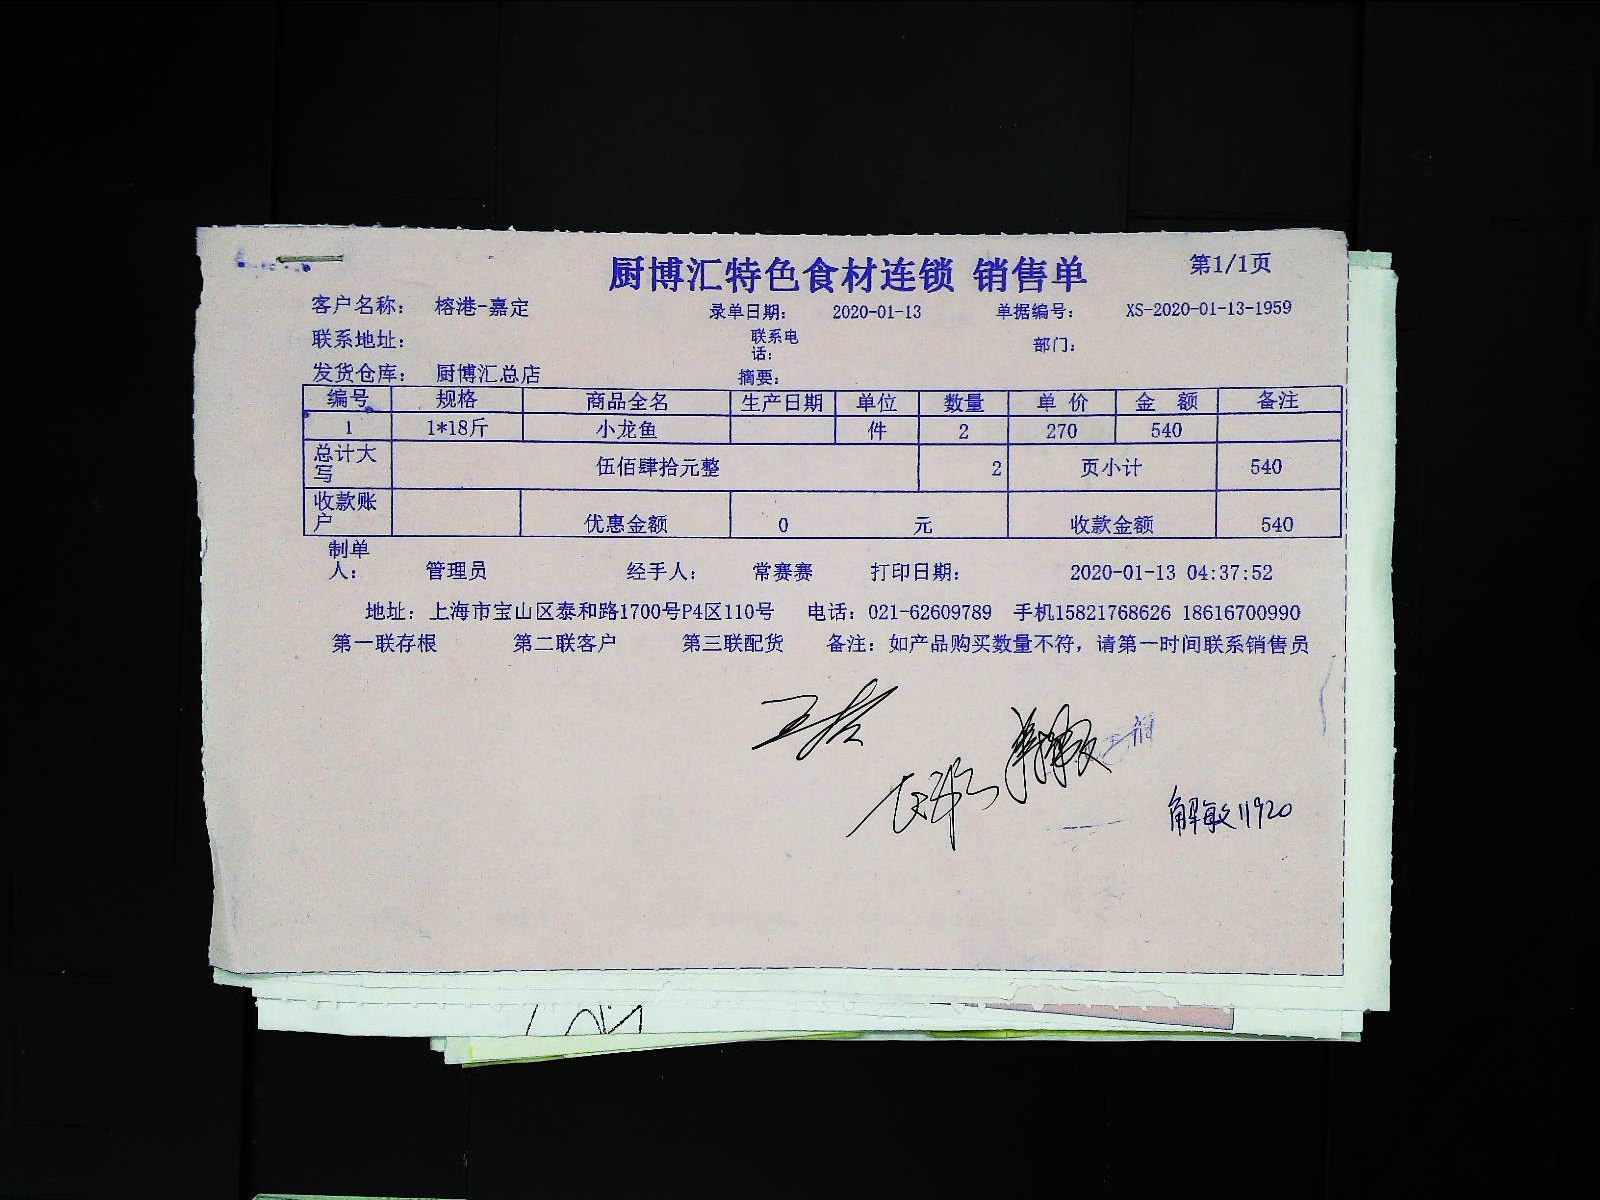 厨博汇特色食材连锁 销售单 第1/1页
客户名称： 榕港-嘉定 录单日期： 2020-01-13 单据编号： XS-2020-01-13-1959
联系地址： 联系电话： 部门：
发货仓库： 厨博汇总店 摘要：
编号 规格 商品全名 生产日期 单位 数量 单 价 金 额 备注
1 1*18斤 小龙鱼 件 2 270 540
总计大写 伍佰肆拾元整 2 页小计 540
收款账户 优惠金额 0 元 收款金额 540
制单人： 管理员 经手人： 常赛赛 打印日期： 2020-01-13 04:37:52
地址：上海市宝山区泰和路1700号P4区110号 电话：021-62609789 手机15821768626 18616700990
第一联存根 第二联客户 第三联配货 备注：如产品购买数量不符，请第一时间联系销售员
解敏11920